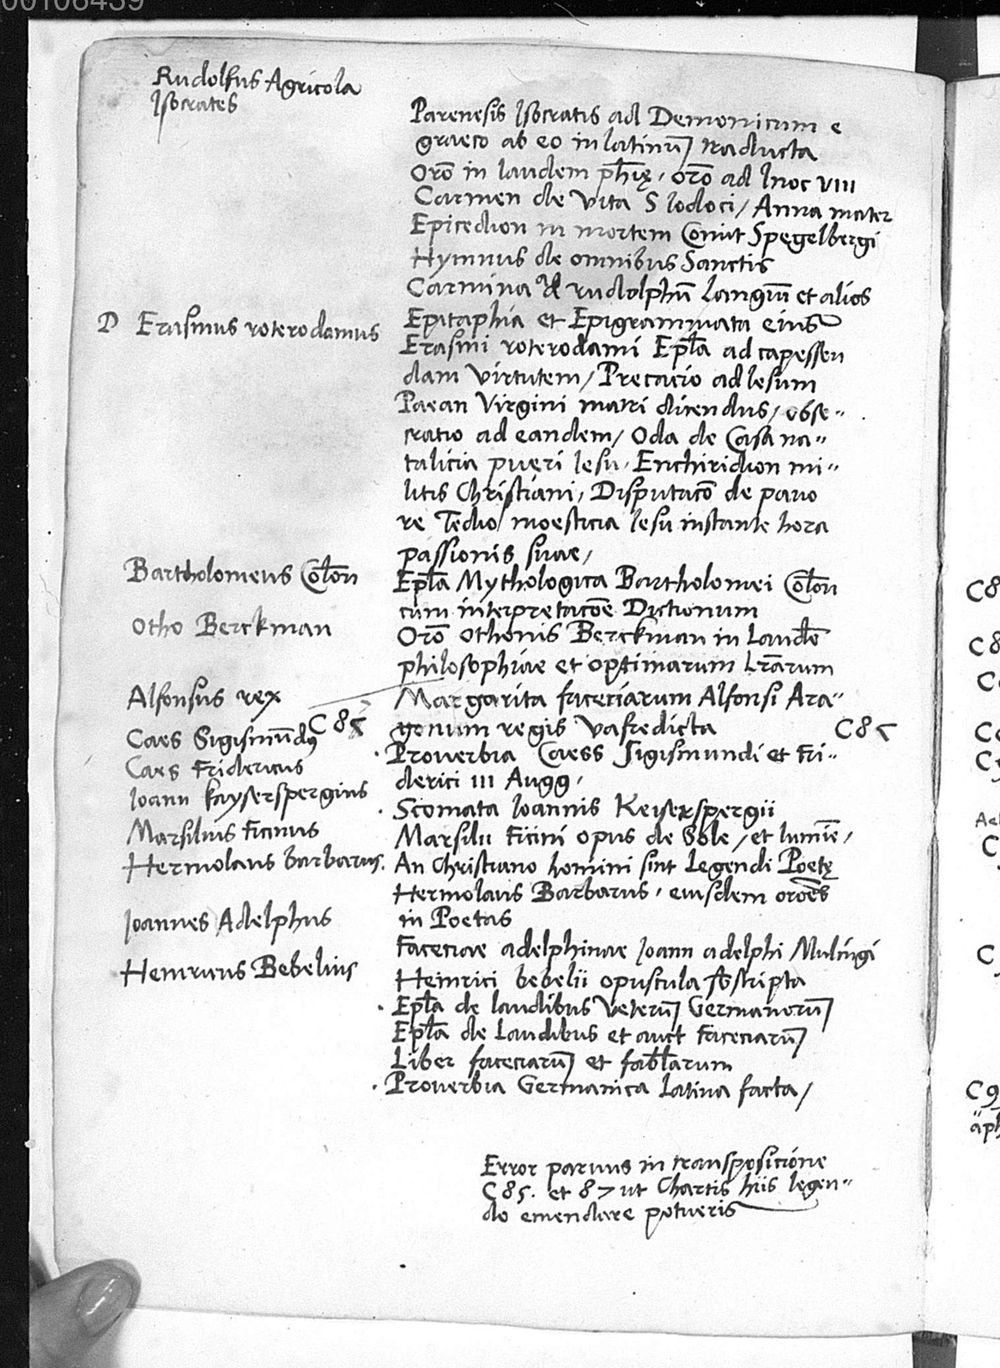 00106439
Rudolfus Agricola
Isocrates
Parenesis Isocratis ad Demonicum e
graeco ab eo in latinū traducta
Orō in laudem phīę, orō ad Inoc VIII
Carmen de vita S Iodoci / Anna mater
Epicedion in mortem Comit Spęgelbergi
Hymnus de omnibus Sanctis
Carmina ad rudolphū Langiū et alios
Epitaphia et Epigrammata eius
D Erasmus roterodamus
Erasmi roterodami Epl̄a ad capessen
dam virtutem / Precacio ad Iesum
Paean Virgini matri dicendus, obse-
cratio ad eandem / Oda de Casa na-
talicia pueri Iesu, Enchiridion mi-
litis Christiani, Disputacō de pavo
re Tedio moesticia Iesu instante hora
passionis suae,
Bartholomeus Col̄on
Epl̄a Mythologica Bartholomei Col̄on
cum interpretacōe Dictionum
Otho Berckman
Orō Othonis Berckman in Laudē
philosophiae et optimarum Lr̄arum
Alfonsus rex
Margarita faceciarum Alfonsi Ara-
gonum regis vafredicta
C 85
C 85
Caes Sigismūdꝰ
Caes Fridericus
Proverbia Caess Sigismundi et Fri-
derici III Augg,
Ioann Kayserspergius
Scomata Ioannis Keiserspergii
Marsilius Ficinus
Marsilii Ficini opus de Sole, et lumīe,
Hermolaus barbarus.
An Christiano homini sint Legendi Poetę
Hermolaus Barbarus, eiusdem orōes
in Poetas
Joannes Adelphus
Faceciae adelphinae Joann adelphi Mulingi
Heinricus Bebelius
Heinrici bebelii opuscula sb̄scripta
Epl̄a de laudibus Veterū Germanorū
Epl̄a de Laudibus et auct faceciarū
Liber faceciarū et fabl̄arum
Proverbia Germanica Latina facta,
Error parvus in transposicione
C 85. et 87 ut Chartis hiis legen-
do emendare potueris
C8
C8
C
C